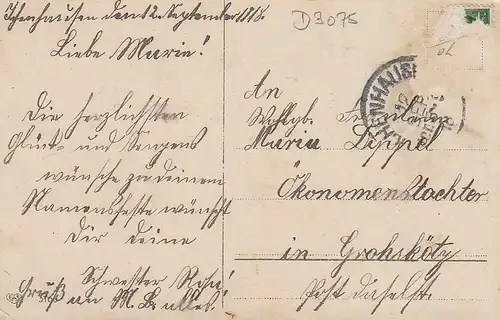 Ichenhausen dem 12. September 1918.
D3075
Liebe Marie!
Die herzlichsten
Glück- und Segens
wünsche zu deinem
Namensfeste wünscht
Dir deine
Schwester Rosa!
Gruß an M. &  alles!
An
Wohlgb. Fräulein
Maria Deppel
Ökonomenstochter
in Großkötz
Post daselbst.
ICHENHAUSEN